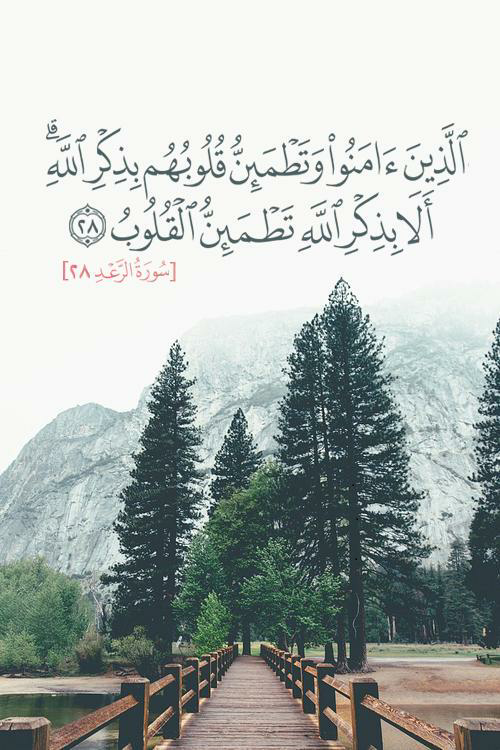 ٱلَّذِينَ ءَامَنُوا۟ وَتَطْمَئِنُّ قُلُوبُهُم بِذِكْرِ ٱللَّهِ ۗ
أَلَا بِذِكْرِ ٱللَّهِ تَطْمَئِنُّ ٱلْقُلُوبُ ٢٨
[سُورَةُ الرَّعْدِ ٢٨]